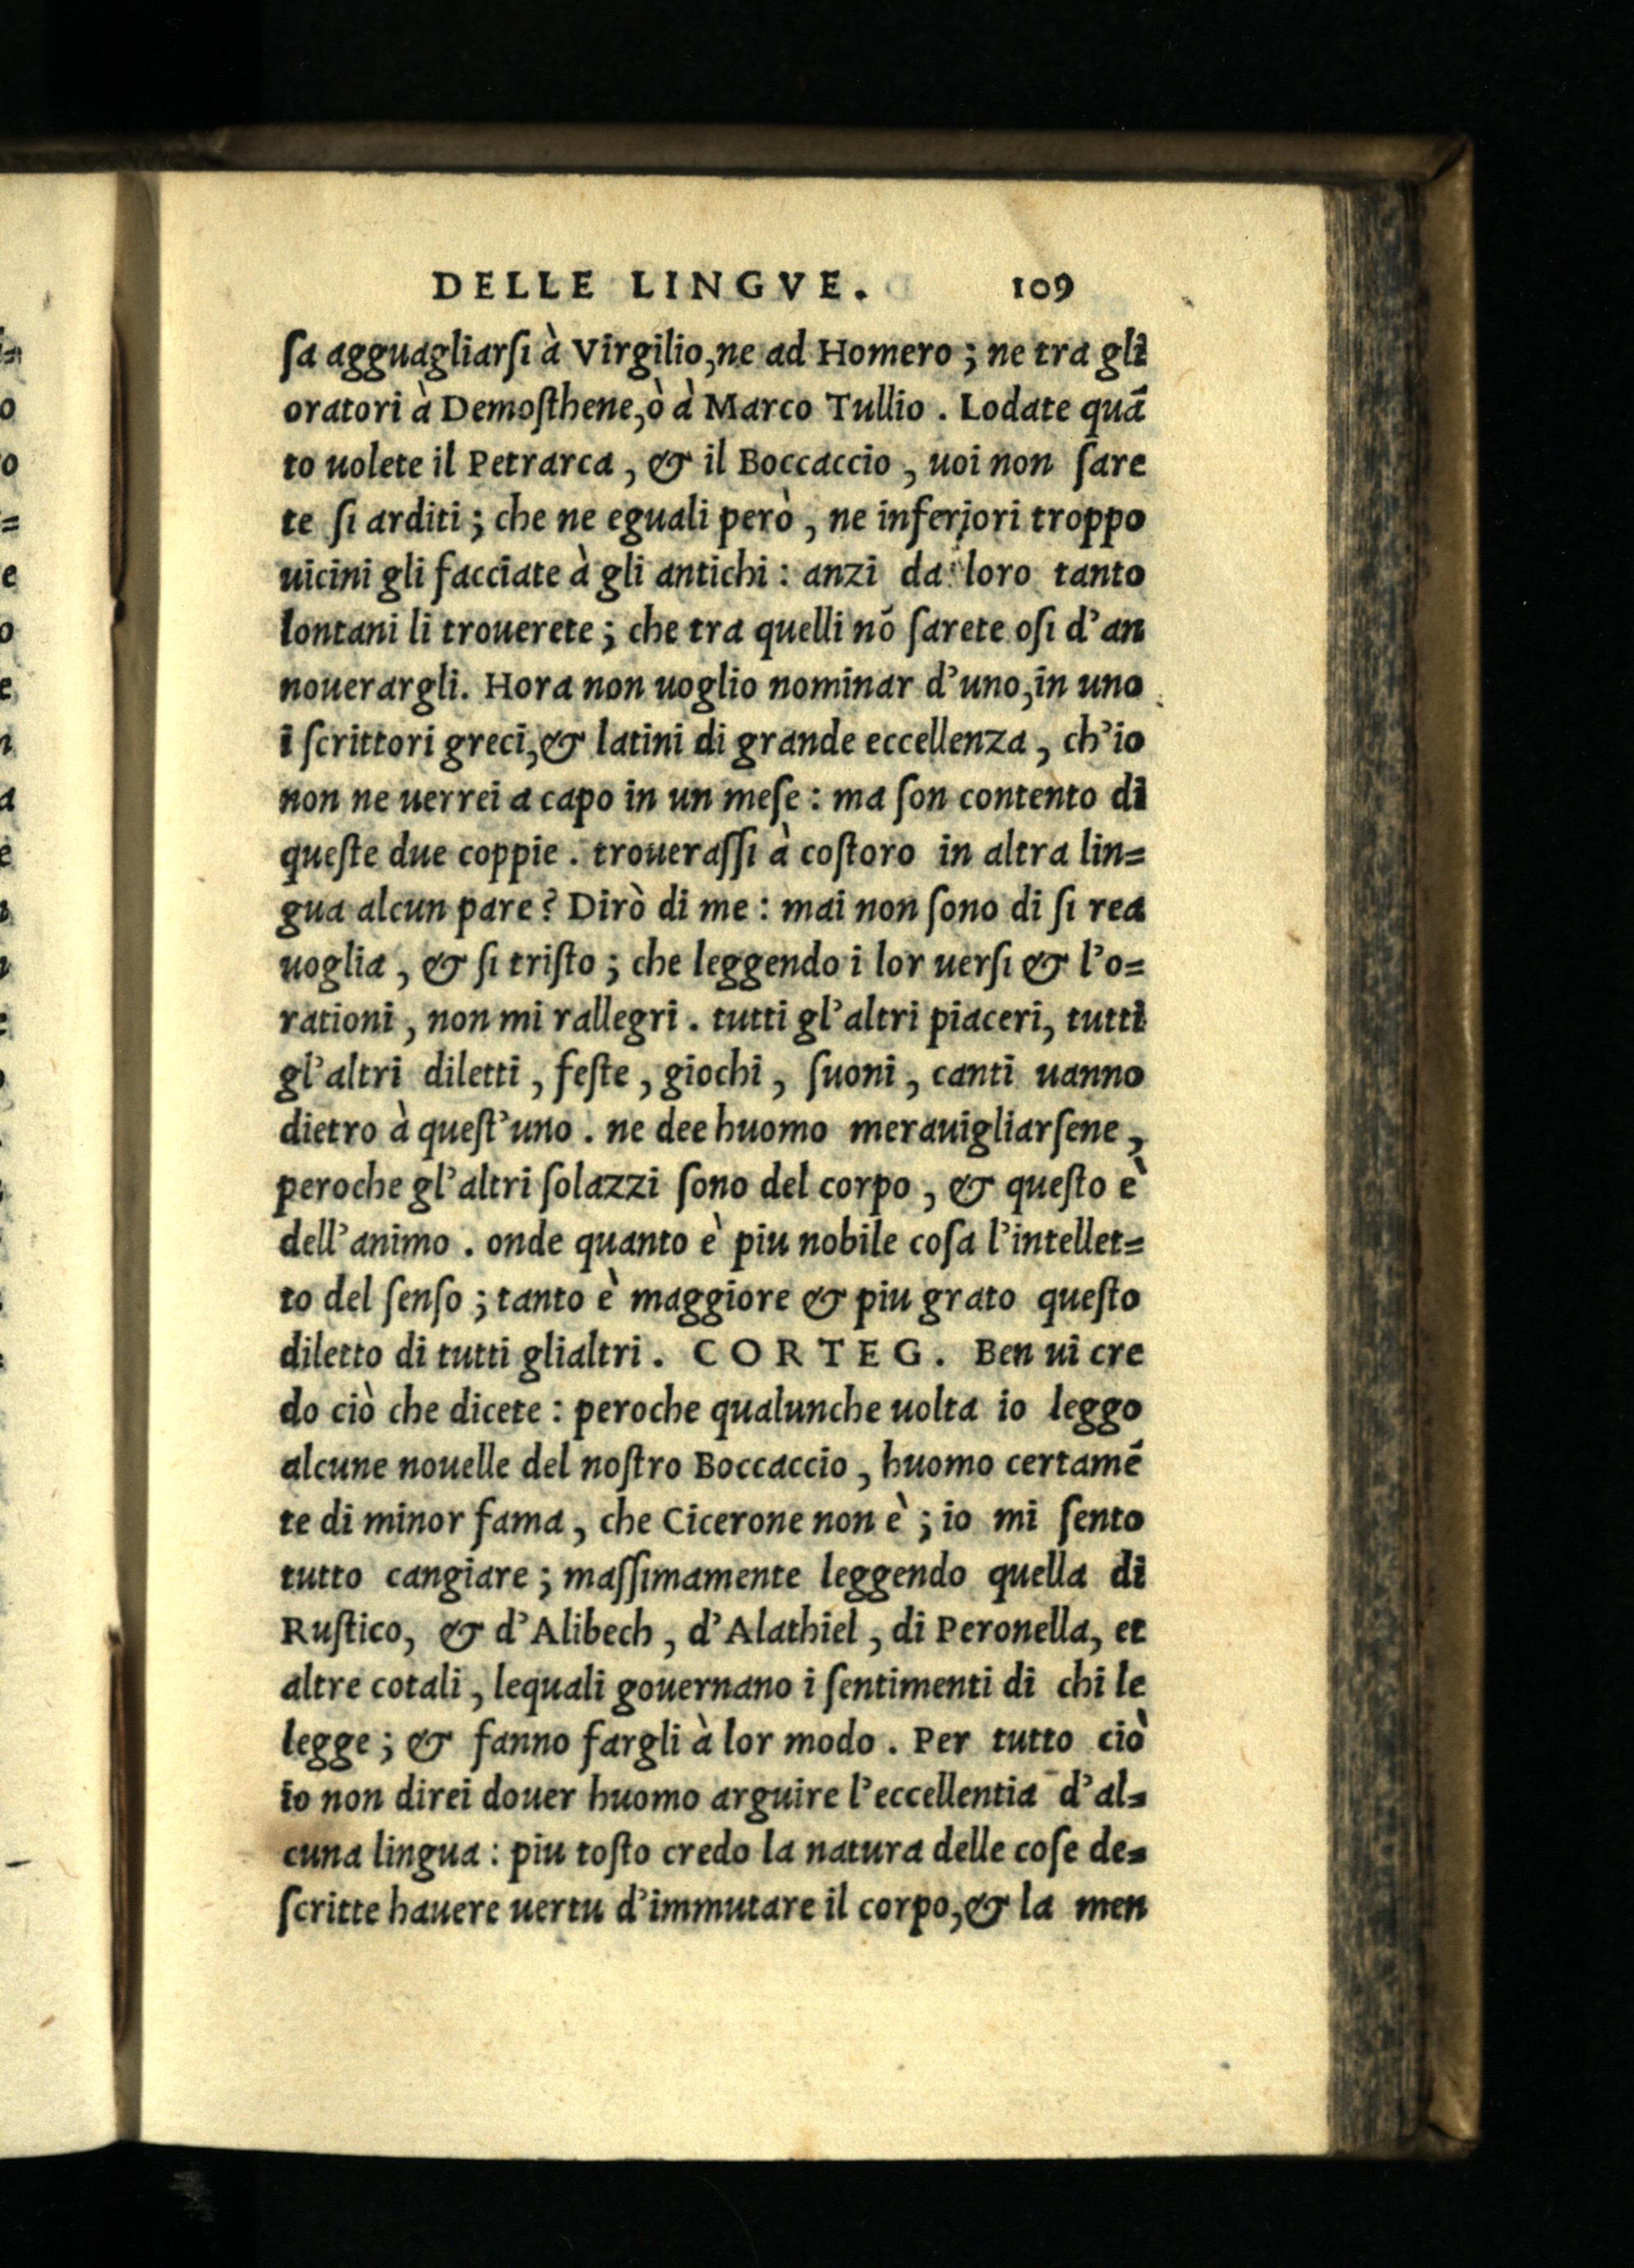 DELLE LINGVE. 109
ſa agguagliarſi à Virgilio, ne ad Homero; ne tra gli
oratori à Demoſthene, ò à Marco Tullio. Lodate quã
to uolete il Petrarca, & il Boccaccio, uoi non ſare
te ſi arditi; che ne eguali però, ne inferiori troppo
uicini gli facciate à gli antichi: anzi da loro tanto
lontani li trouerete; che tra quelli nõ ſarete oſi d'an
nouerargli. Hora non uoglio nominar d'uno, in uno
i ſcrittori greci, & latini di grande eccellenza, ch'io
non ne uerrei a capo in un meſe: ma ſon contento di
queſte due coppie. troueraſſi à coſtoro in altra lin=
gua alcun pare? Dirò di me: mai non ſono di ſi rea
uoglia, & ſi triſto; che leggendo i lor uerſi & l'o=
rationi, non mi rallegri. tutti gl'altri piaceri, tutti
gl'altri diletti, feſte, giochi, ſuoni, canti uanno
dietro à queſt'uno. ne dee huomo merauigliarſene,
peroche gl'altri ſolazzi ſono del corpo, & queſto è
dell'animo. onde quanto è piu nobile coſa l'intellet=
to del ſenſo; tanto è maggiore & piu grato queſto
diletto di tutti glialtri. CORTEG. Ben ui cre
do ciò che dicete: peroche qualunche uolta io leggo
alcune nouelle del noſtro Boccaccio, huomo certamẽ
te di minor fama, che Cicerone non è; io mi ſento
tutto cangiare; maſſimamente leggendo quella di
Ruſtico, & d'Alibech, d'Alathiel, di Peronella, et
altre cotali, lequali gouernano i ſentimenti di chi le
legge; & fanno fargli à lor modo. Per tutto ciò
io non direi douer huomo arguire l'eccellentia d'al=
cuna lingua: piu toſto credo la natura delle coſe de=
ſcritte hauere uertu d'immutare il corpo, & la men